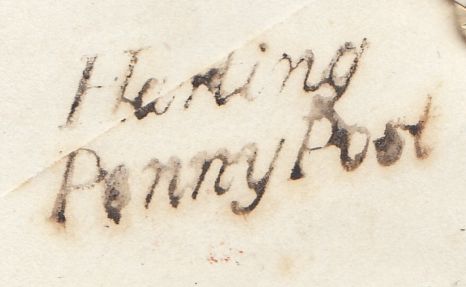 Harling
Penny Post